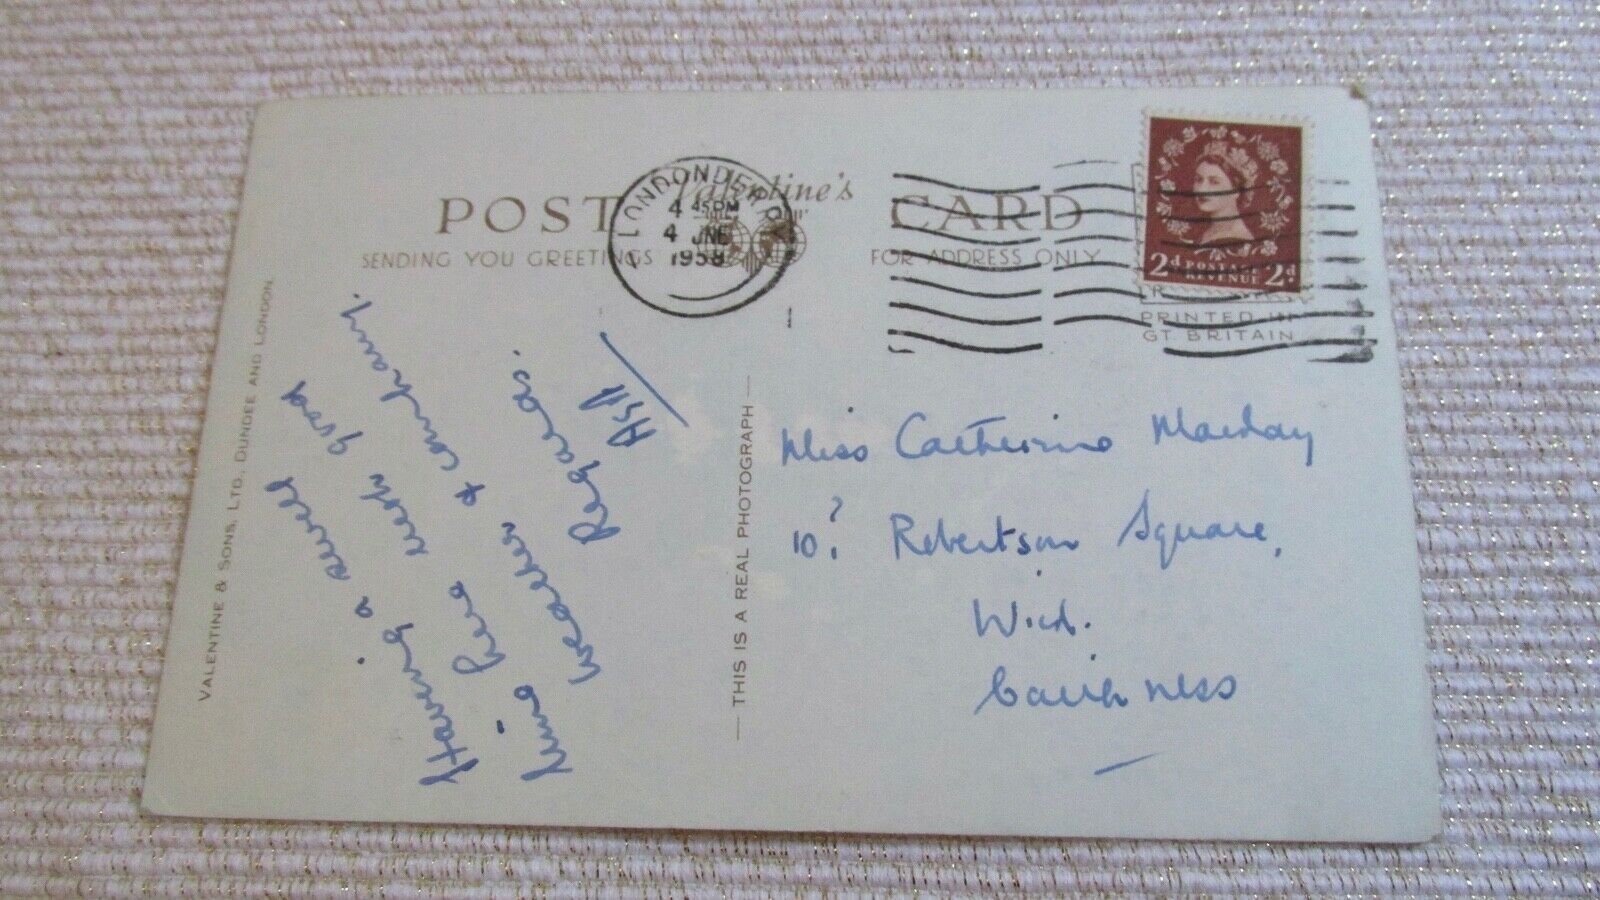 POST CARD
Valentine's
SENDING YOU GREETINGS
FOR ADDRESS ONLY
LONDONDERRY
4 45PM
4 JNE
1958
2d POSTAGE REVENUE 2d
PRINTED IN
GT. BRITAIN
VALENTINE & SONS, LTD. DUNDEE AND LONDON.
Having a swell
time here with good
weather & company.
Regards.
THIS IS A REAL PHOTOGRAPH
Miss Catherine
10? Robertson Square,
Wick.
Caithness